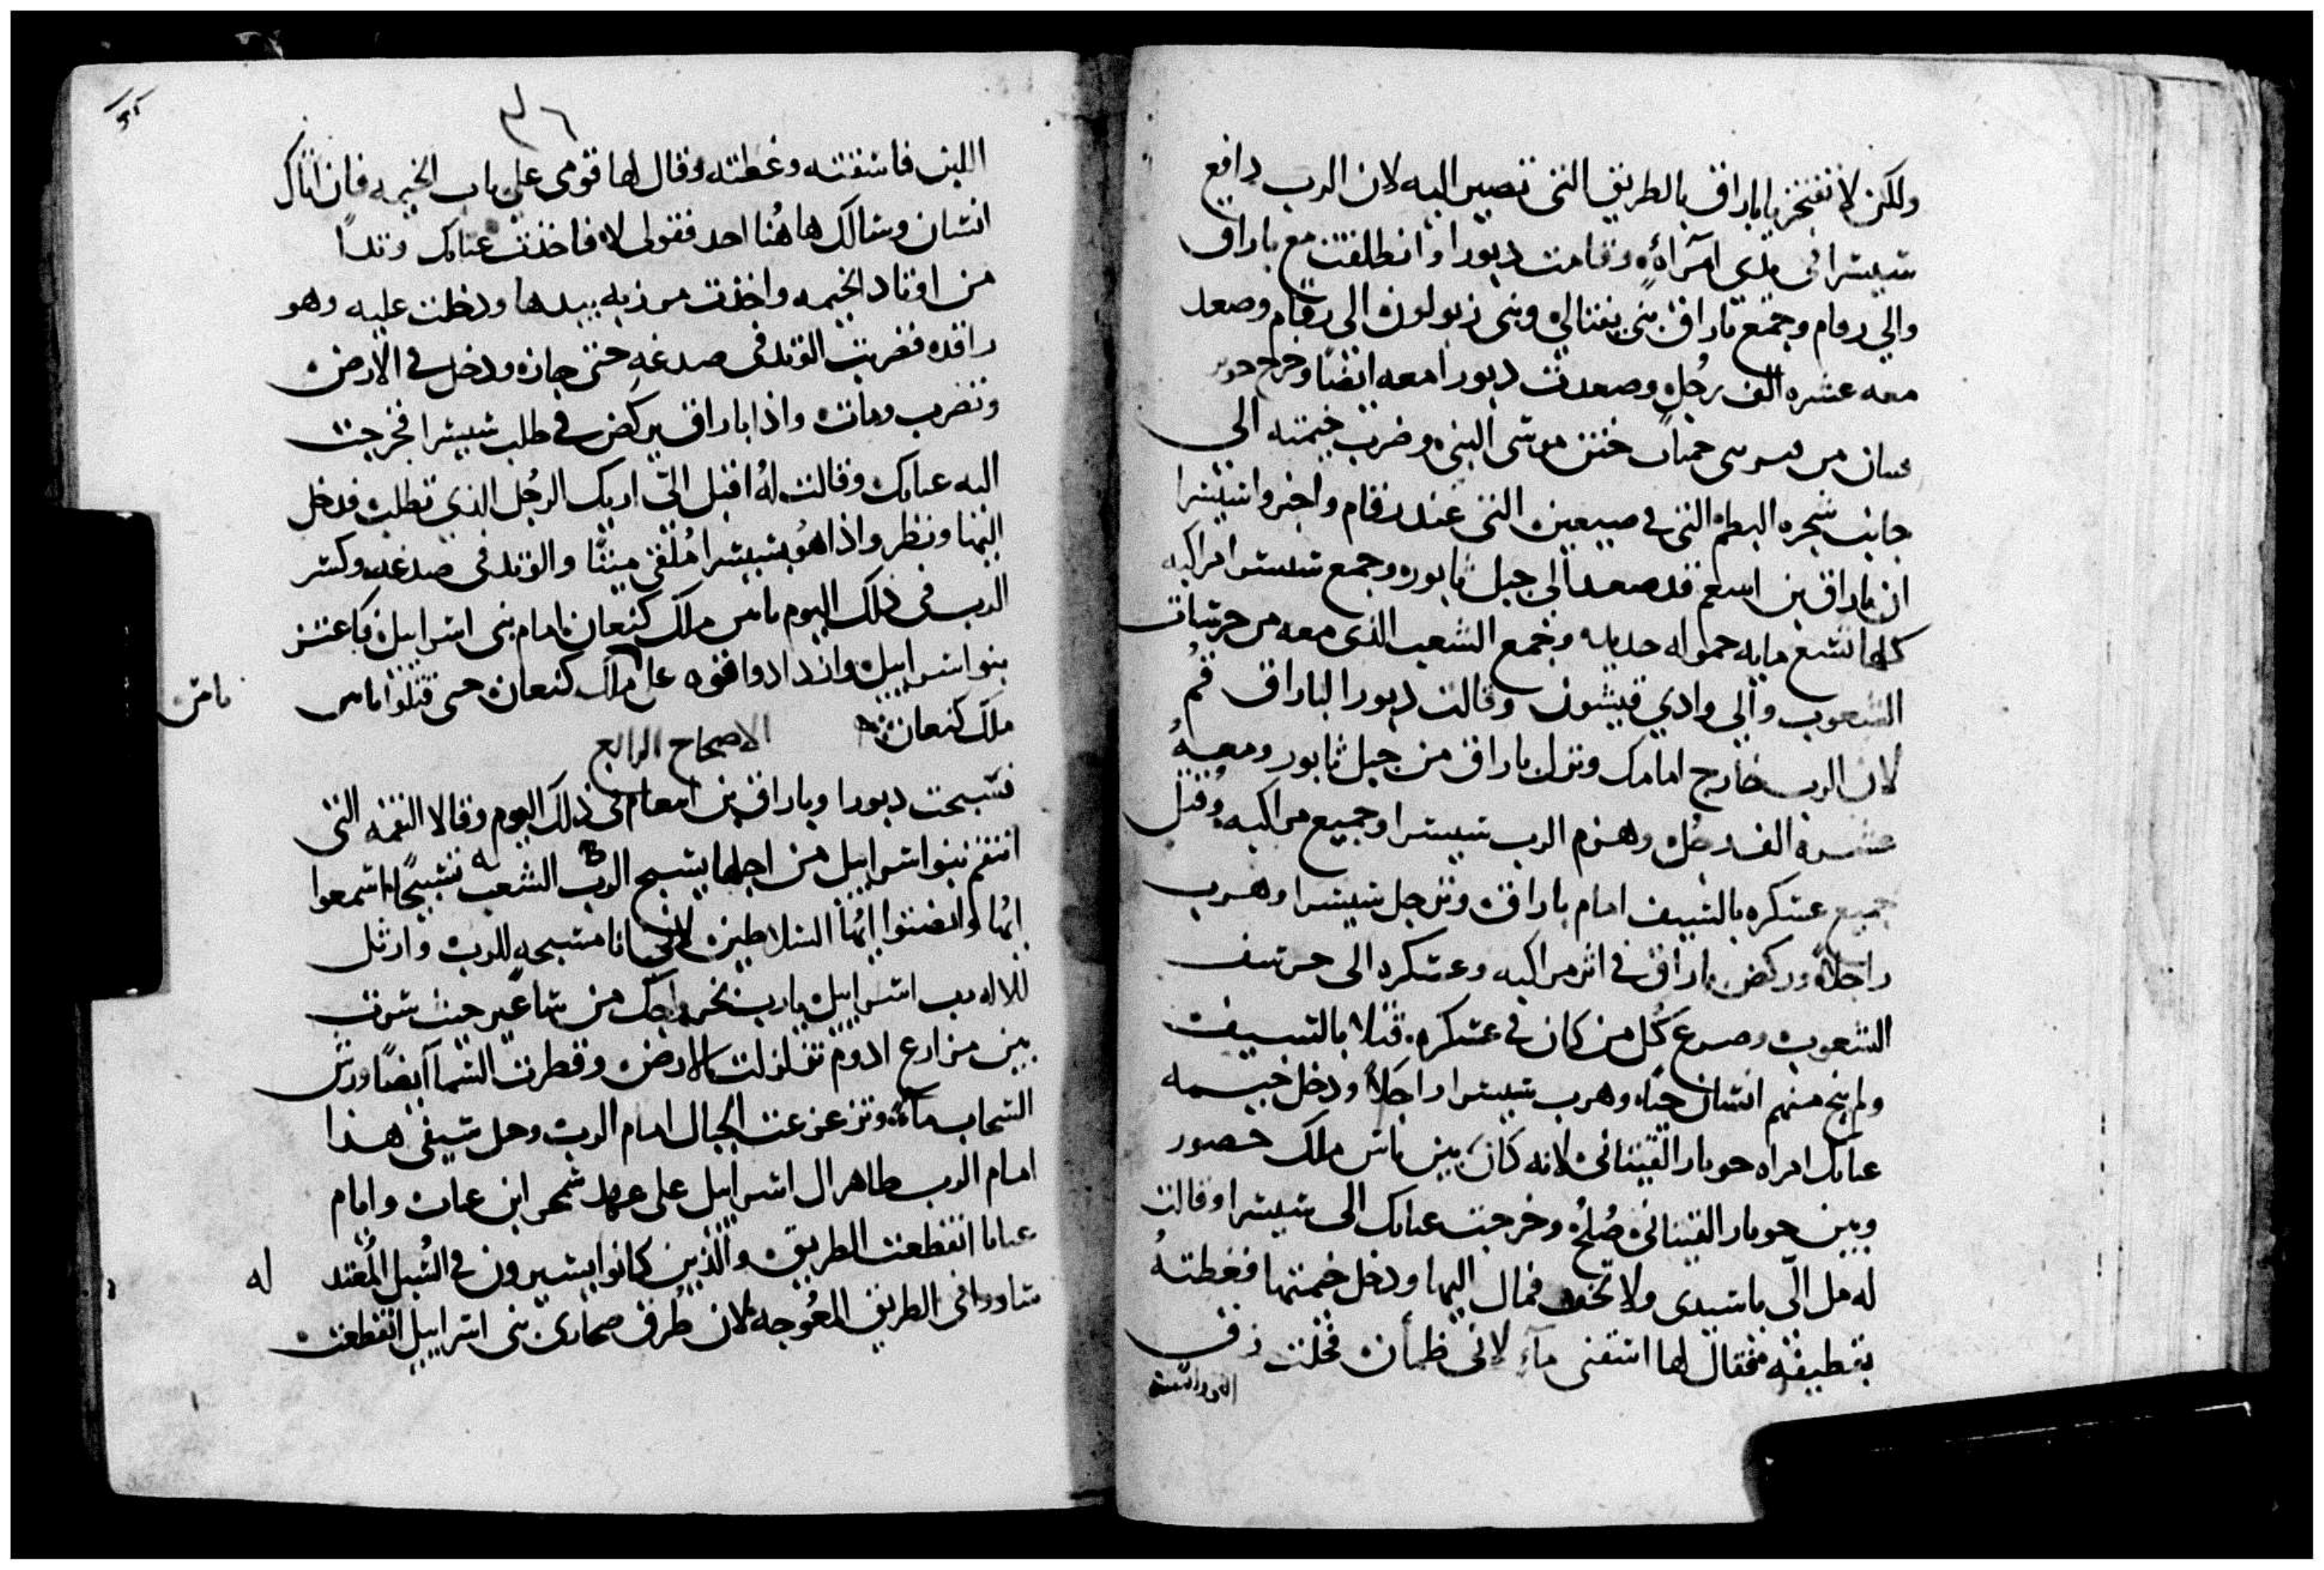 ولكن لا تفتخر يا باراق بالطريق التى تصير اليه لان الرب دافع
شيشرا فى يدى امرآة وقامت دبورا وانطلقت مع باراق
والى رقام وجمع باراق بنى نفتالى وبنى زبولون الى رقام وصعد
معه عشره الف رجل وصعدت دبورا معه ايضا وخرج حوبر
من ختن موسى النبى وضرب خيمته الى
جانب شجره البطم التى فى صيعين التى عند رقام واخبروا شيشرا
ان باراق بن قد صعد الى جبل ثابور وجمع شيشرا مراكبه
كلها تسع مايه حموله حديد وجمع الشعب الذى معه من حرشات
الشعوب والى وادي قيشون وقالت دبورا لباراق قم
لان الرب خارج امامك ونزل باراق من جبل ثابور ومعه
عشره الف رجل وهزم الرب شيشرا وجميع مراكبه وقتل
جميع عسكره بالسيف امام باراق وترجل شيشرا وهرب
راجلا وركض باراق فى اثر مراكبه وعسكره الى حرشف
الشعوب وصرع كل من كان فى عسكره قتلا بالسيف
ولم ينج منهم انسان حيا وهرب شيشرا راجلا ودخل خيمه
عنايك امراه حوبار القينانى لانه كان بين يابين ملك حصور
وبين حوبار القينانى صلح وخرجت عنايك الى شيشرا وقالت
له مل الىّ يا سيدى ولا تخف فمال اليها ودخل خيمتها فغطته
بقطيفه فقال لها اسقنى ماء لانى ظمأن فحلت زق
٤٦
اللبن فاسقته وغطته وقال لها قومى على باب الخيمه فان اتاك
انسان وسالك هاهنا احد فقولى لا فاخذت عنايك وتدا
من اوتاد الخيمه واخذت مرزبه بيدها ودخلت عليه وهو
راقد فضربت الوتد فى صدغه حتى جازه ودخل فى الارض
وتضرب ومات واذا باراق يركض فى طلب شيشرا فخرجت
اليه عنايك وقالت له اقبل الىّ اريك الرجل الذي تطلب فدخل
اليها ونظر واذا هو بشيشرا ملقى ميتا والوتد فى صدغه وكسر
الرب فى ذلك اليوم يابين ملك كنعان امام بنى اسرايل فاعتز
بنو اسرايل وازدادوا قوه على ملك كنعان حتى قتلوا يابين
ملك كنعان
الاصحاح الرابع
فسبحت دبورا وباراق بن فى ذلك اليوم وقالا النقمه التى
انتقم بنو اسرايل من اجلها يسبح الرب الشعب تسبيحا اسمعوا
ايها وانصتوا ايها السلاطين لانى انا مسبحه للرب وارتل
للاله رب اسرايل يارب بخرواجك من ساعير حيث سرت
بين مزارع ادوم تزلزلت الارض وقطرت السما ايضا ورش
السحاب ماء وتزعزعت الجبال امام الرب وحل سيفى هذا
امام الرب طاهر ال اسرايل على عهد شمحر ابن عناث وامام
عنايا انقطعت الطريق والذين كانوا يسيرون فى السبل المعتد له
ساروا فى الطريق المعوجه لان طرق صحارى بنى اسرايل انقطعت